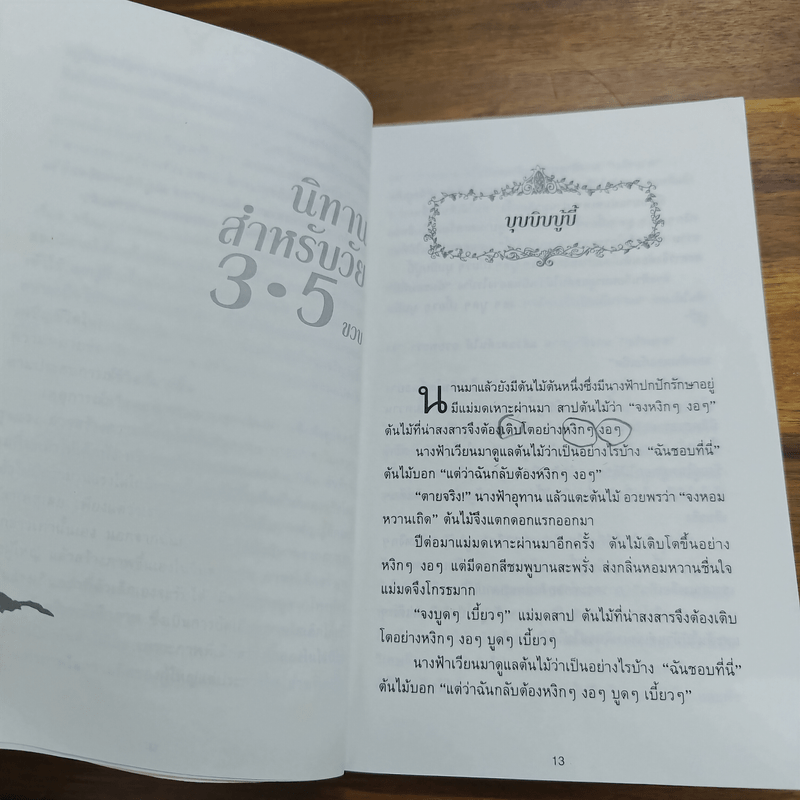 นิทาน
สำหรับวัย
3•5 ขวบ
บุบบิบบู้บี้
นานมาแล้วยังมีต้นไม้ต้นหนึ่งซึ่งมีนางฟ้าปกปักรักษาอยู่
มีแม่มดเหาะผ่านมา สาปต้นไม้ว่า “จงหงิกๆ งอๆ”
ต้นไม้ที่น่าสงสารจึงต้องเติบโตอย่างหงิกๆ งอๆ
นางฟ้าเวียนมาดูแลต้นไม้ว่าเป็นอย่างไรบ้าง “ฉันชอบที่นี่”
ต้นไม้บอก “แต่ว่าฉันกลับต้องหงิกๆ งอๆ”
“ตายจริง!” นางฟ้าอุทาน แล้วแตะต้นไม้ อวยพรว่า “จงหอม
หวานเถิด” ต้นไม้จึงแตกดอกแรกออกมา
ปีต่อมาแม่มดเหาะผ่านมาอีกครั้ง ต้นไม้เติบโตขึ้นอย่าง
หงิกๆ งอๆ แต่มีดอกสีชมพูบานสะพรั่ง ส่งกลิ่นหอมหวานชื่นใจ
แม่มดจึงโกรธมาก
“จงบูดๆ เบี้ยวๆ” แม่มดสาป ต้นไม้ที่น่าสงสารจึงต้องเติบ
โตอย่างหงิกๆ งอๆ บูดๆ เบี้ยวๆ
นางฟ้าเวียนมาดูแลต้นไม้ว่าเป็นอย่างไรบ้าง “ฉันชอบที่นี่”
ต้นไม้บอก “แต่ว่าฉันกลับต้องหงิกๆ งอๆ บูดๆ เบี้ยวๆ”
13